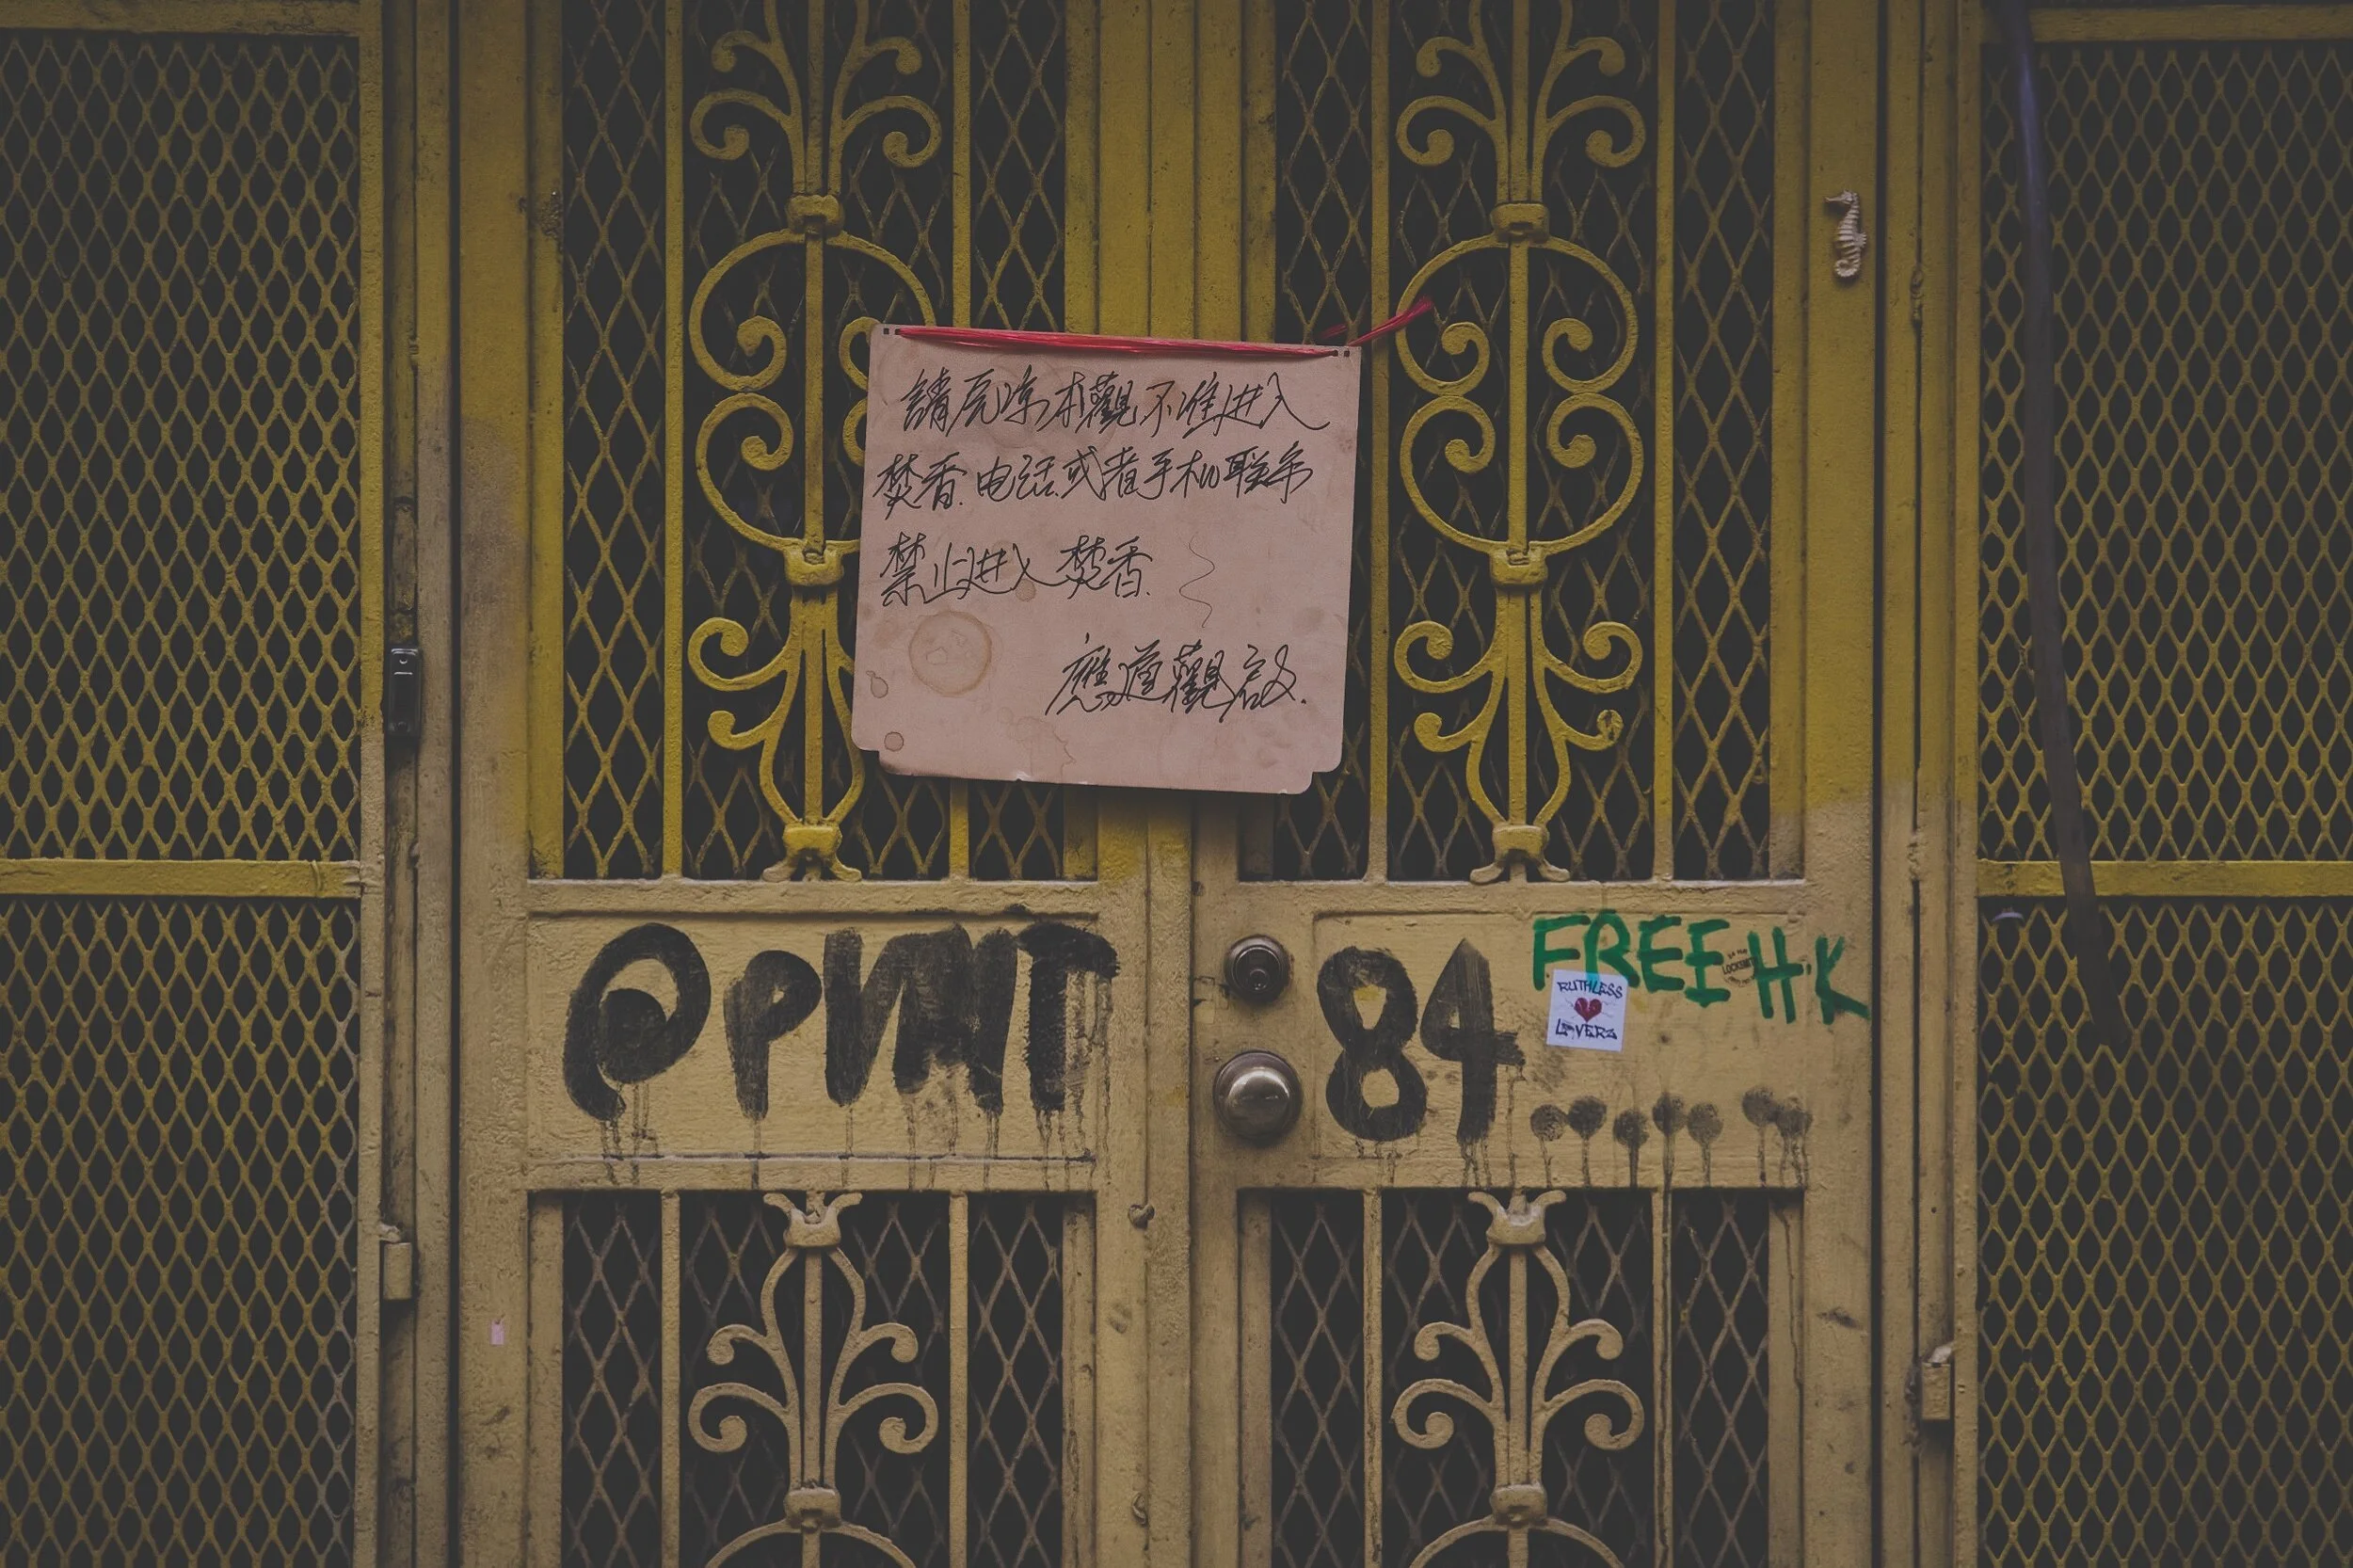 請原凉本觀不准进入
焚香.电话或者手机联系
禁止进入焚香.
應道觀啟.
84
FREE HK
LOCKSMITH
RUTHLESS
LOVERZ